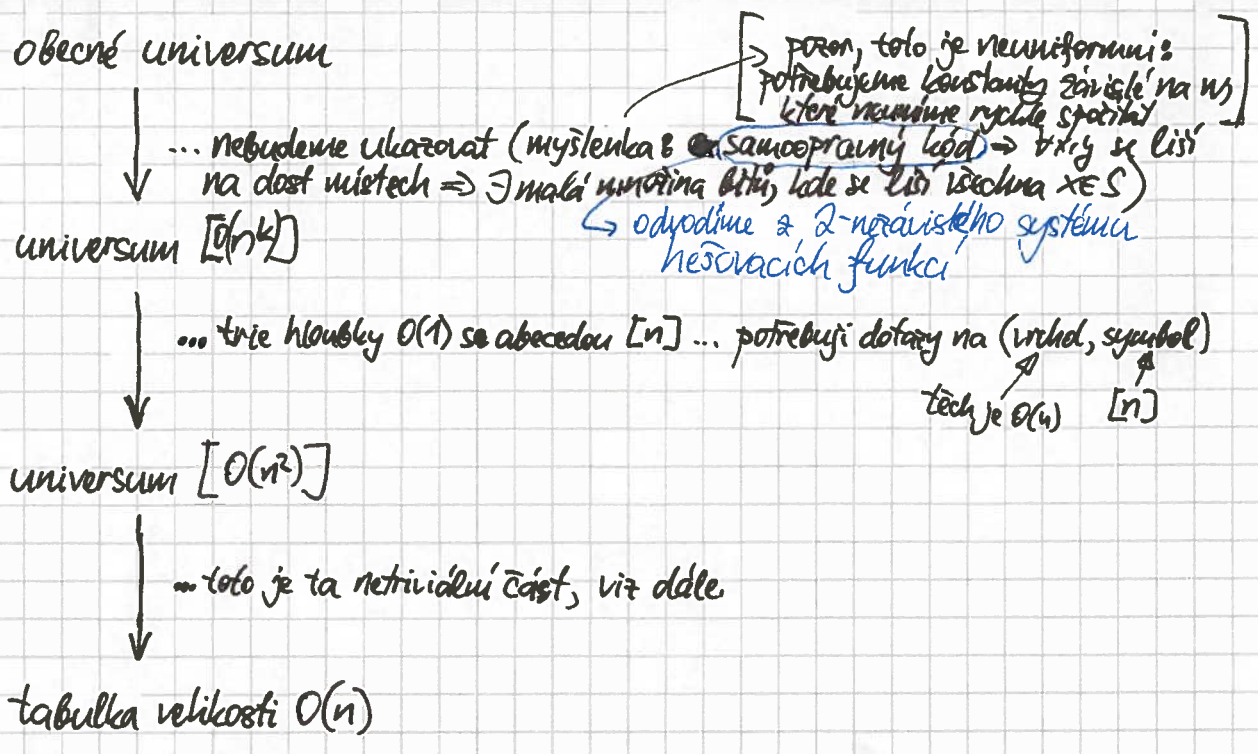 obecné universum
pozor, toto je neuniformní:
potřebujeme konstanty závislé na w,
které neumíme rychle spočítat
... nebudeme ukazovat (myšlenka: samoopravný kód ⇒ ∀x,y se liší
na dost místech ⇒ ∃ malá množina bitů, kde se liší všechna x∈S)
↳ odvodíme z 2-nezávislého systému
hešovacích funkcí
universum [O(n^k)]
... trie hloubky O(1) se abecedou [n] ... potřebuji dotazy na (vrchol, symbol)
těch je O(n) [n]
universum [O(n²)]
... toto je ta netriviální část, viz dále.
tabulka velikosti O(n)